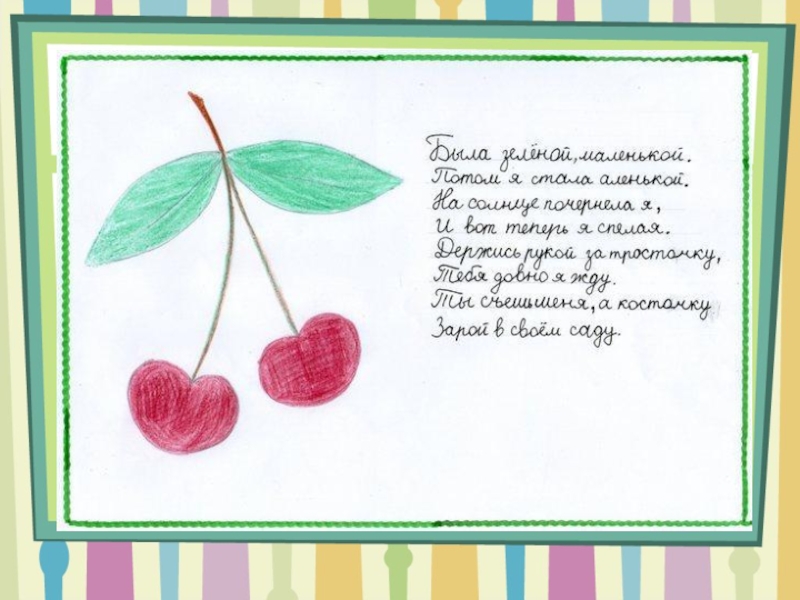 Была зелёной, маленькой.
Потом я стала аленькой.
На солнце почернела я,
И вот теперь я спелая.
Держись рукой за тросточку,
Тебя довно я жду.
Ты съешь меня, а косточку
Зарой в своём саду.